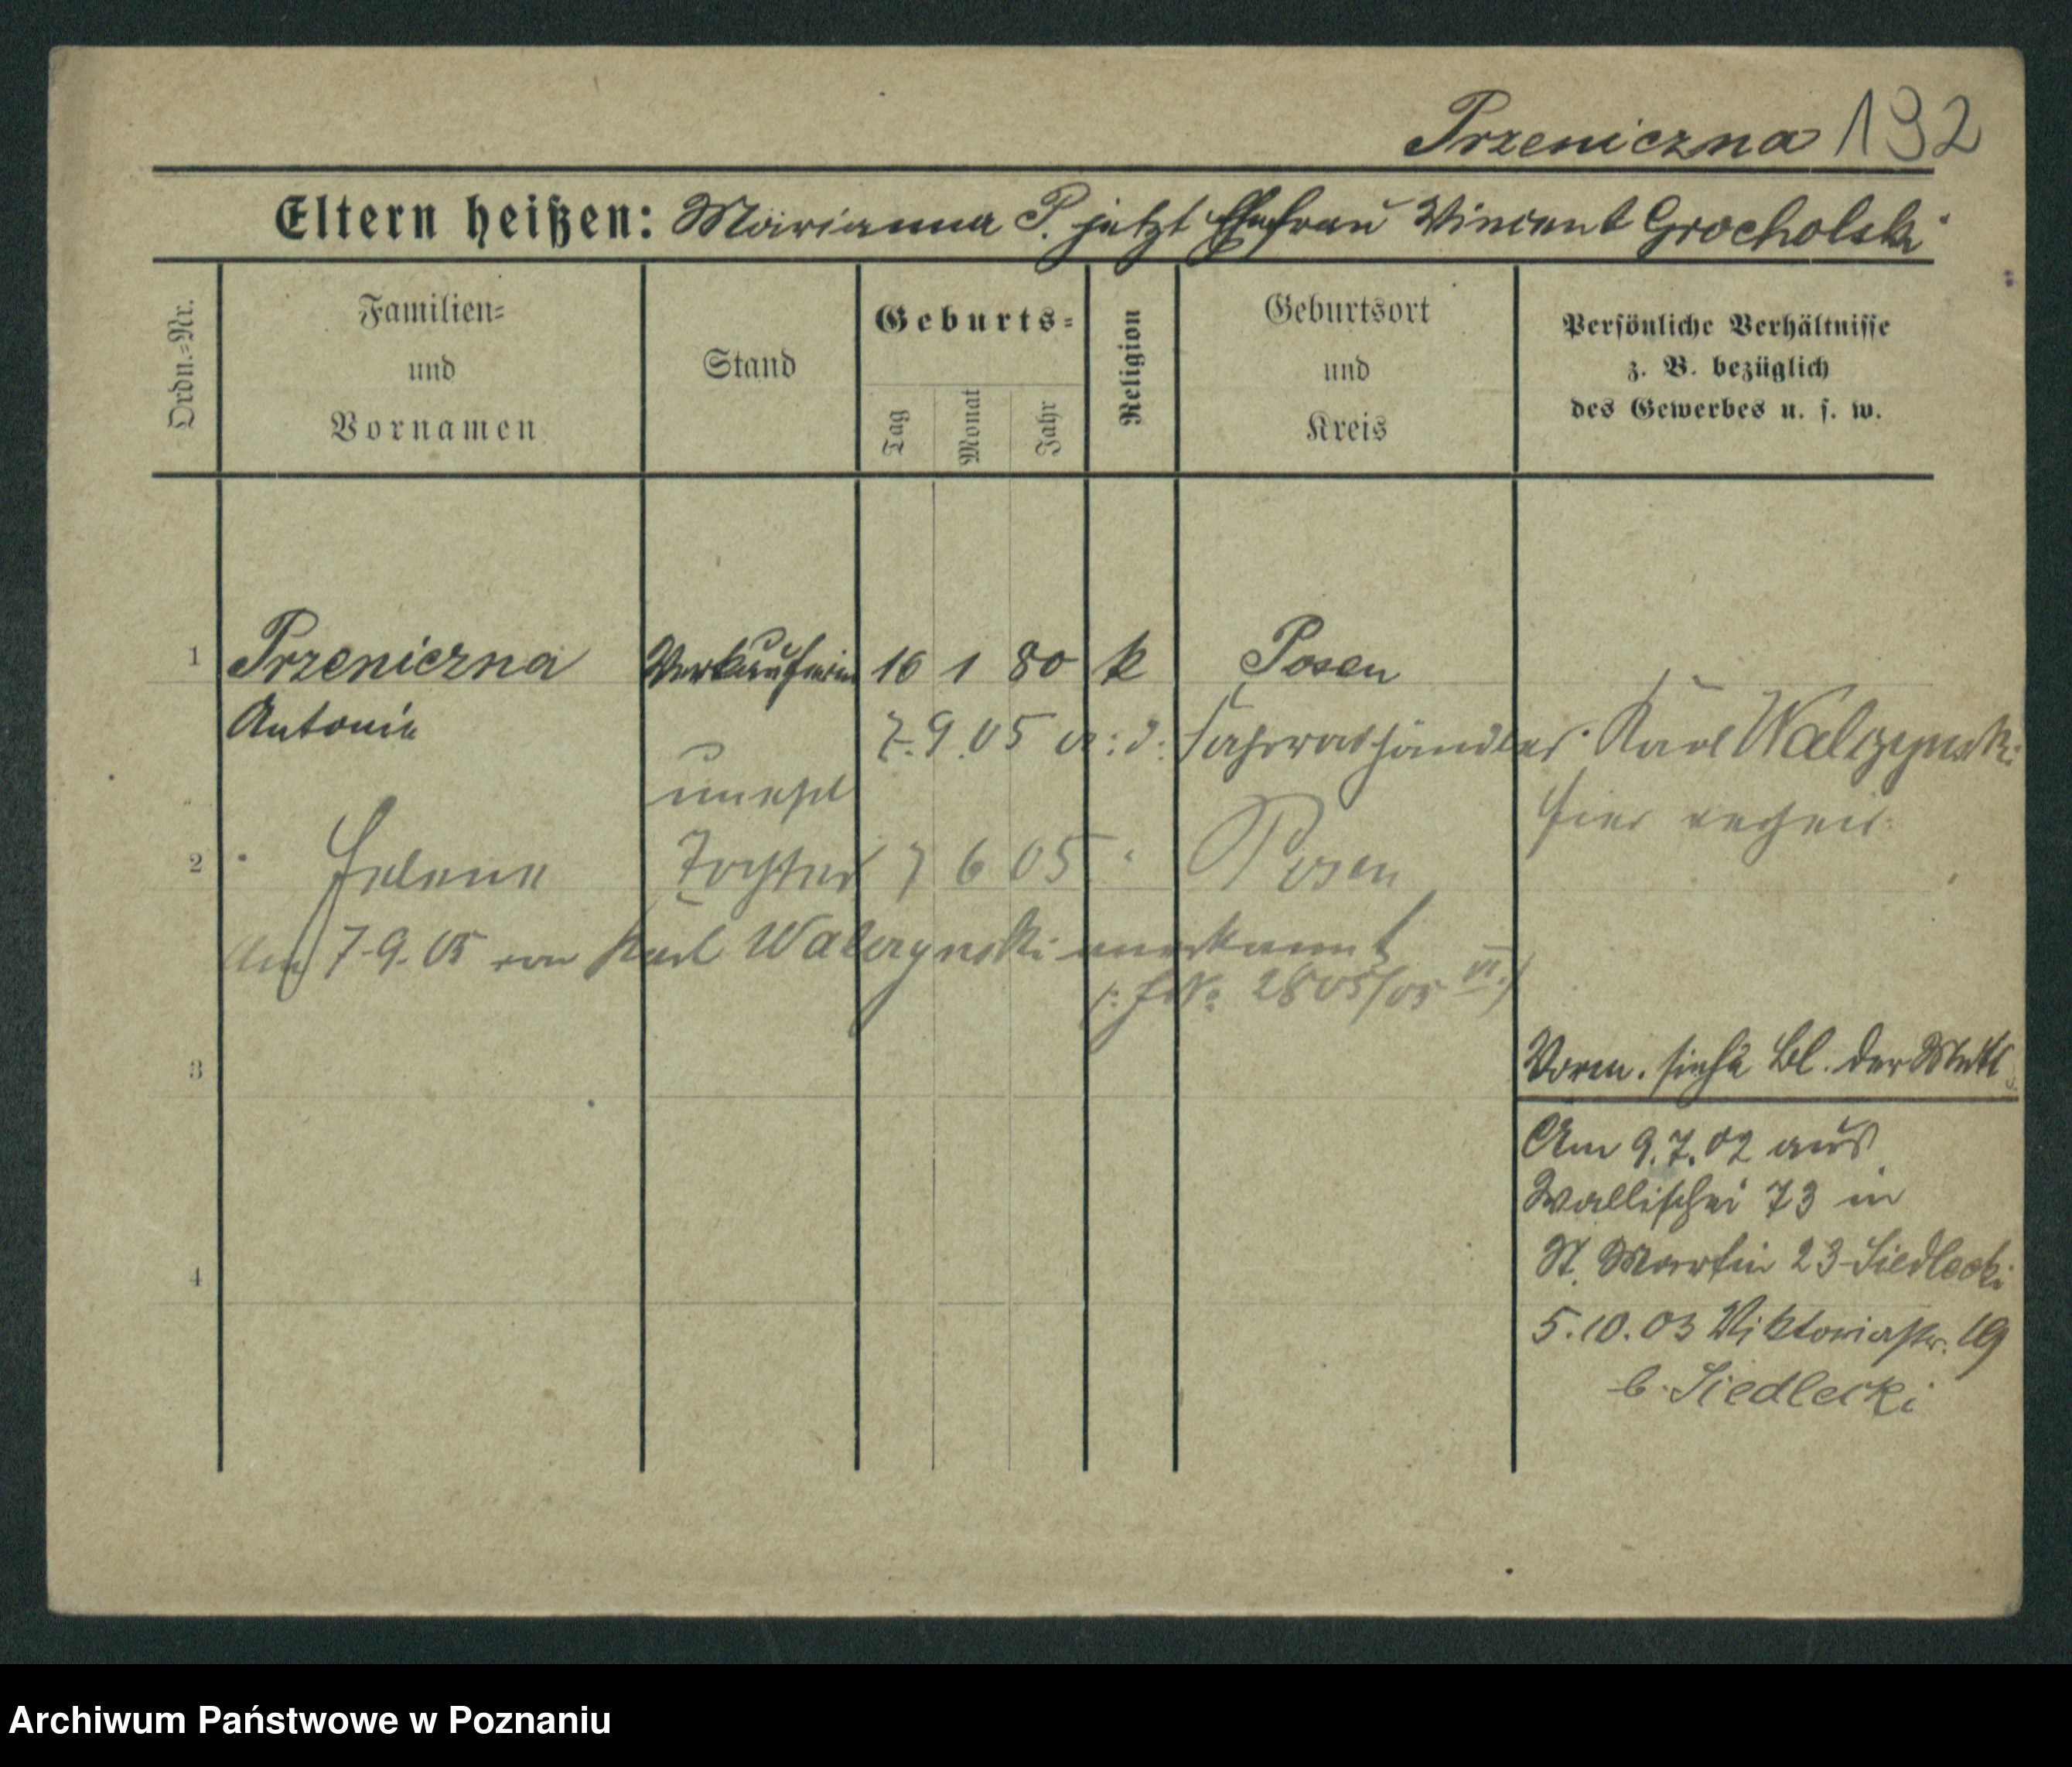 Przeniczna 192
Eltern heißen: Marianna P. jetzt Ehefrau Vincent Grocholski
Ordn.=Nr.
Familien=
und
Vornamen
Stand
Geburts=
Tag
Monat
Jahr
Religion
Geburtsort
und
Kreis
Persönliche Verhältnisse
z. B. bezüglich
des Gewerbes u. s. w.
1 Przeniczna Verkäuferin 16 1 80 k Posen
Antonie
7.9.05 m: d: Karl Walczynski
unehel
hier verheir:
2 Helene Tochter 7 6 05 " Posen
Am 7.9.05 von Karl Walczynski anerkannt
2805/05 VI.)
3
Vorm. siehe Bl. der Mutt.
Am 9.7.02 aus
Wallischei 73 in
4
St. Martin 23 Siedlecki
5.10.03 Viktoriastr. 19
b. Siedlecki
Archiwum Państwowe w Poznaniu